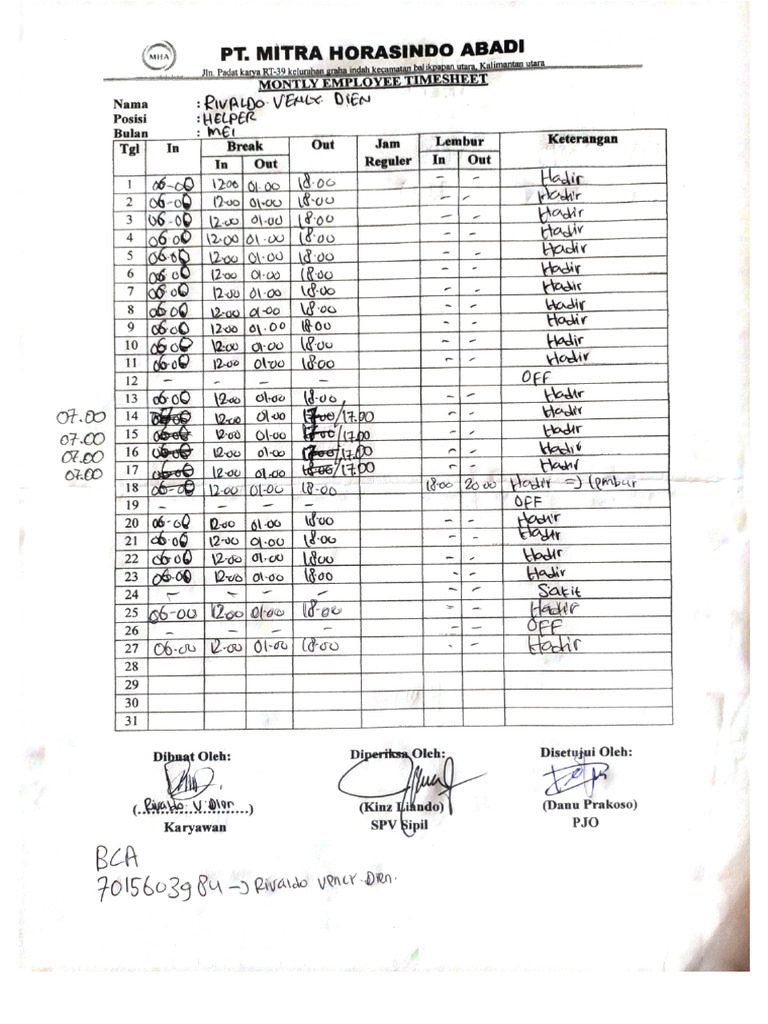 MHA
PT. MITRA HORASINDO ABADI
Jln. Padat karya RT-39 kelurahan graha indah kecamatan balikpapan utara, Kalimantan utara
MONTLY EMPLOYEE TIMESHEET
Nama : RIVALDO VENLY DIEN
Posisi : HELPER
Bulan : MEI
Tgl In Break Out Jam Reguler Lembur Keterangan
In Out In Out
1 06-00 12.00 01.00 18.00 - - Hadir
2 06-00 12.00 01-00 18.00 - - Hadir
3 06-00 12.00 01-00 18.00 - - Hadir
4 06.00 12.00 01.00 18.00 - - Hadir
5 06.00 12.00 01.00 18.00 - - Hadir
6 06.00 12.00 01.00 18.00 - - Hadir
7 06.00 12.00 01-00 18.00 - - Hadir
8 06.00 12.00 01-00 18.00 - - Hadir
9 06.00 12.00 01.00 18.00 - - Hadir
10 06.00 12.00 01.00 18.00 - - Hadir
11 06.00 12.00 01.00 18.00 - - Hadir
12 - - - - OFF
13 06.00 12.00 01.00 18.00 - - Hadir
07.00 14 06.00 12.00 01.00 17.00/17.00 - - Hadir
07.00 15 06.00 12.00 01.00 17.00/17.00 - - Hadir
07.00 16 06.00 12.00 01.00 17.00/17.00 - - Hadir
07.00 17 06.00 12.00 01.00 18.00/17.00 - - Hadir
18 06-00 12.00 01-00 18.00 18.00 20.00 Hadir => lembur
19 - - - - OFF
20 06.00 12.00 01.00 18.00 - - Hadir
21 06.00 12.00 01.00 18.00 - - Hadir
22 06.00 12.00 01.00 18.00 - - Hadir
23 06.00 12.00 01.00 18.00 - - Hadir
24 - - - - - - Sakit
25 06-00 12.00 01.00 18.00 - - Hadir
26 - - - - - - OFF
27 06.00 12.00 01.00 18.00 - - Hadir
28
29
30
31
Dibuat Oleh: Diperiksa Oleh: Disetujui Oleh:
(Rivaldo V. Dien) (Kinz Liando) (Danu Prakoso)
Karyawan SPV Sipil PJO
BCA
7015603984 -> Rivaldo Venly Dien.